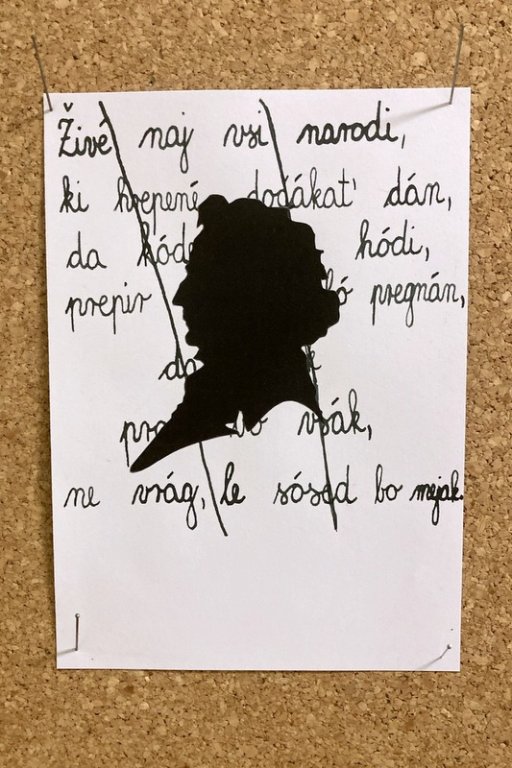 Živé naj vsi narodi,
ki hrepené dočákat' dán,
da hódi,
prepir pregnán,
vsák,
ne vrág, le sósed bo mejak.